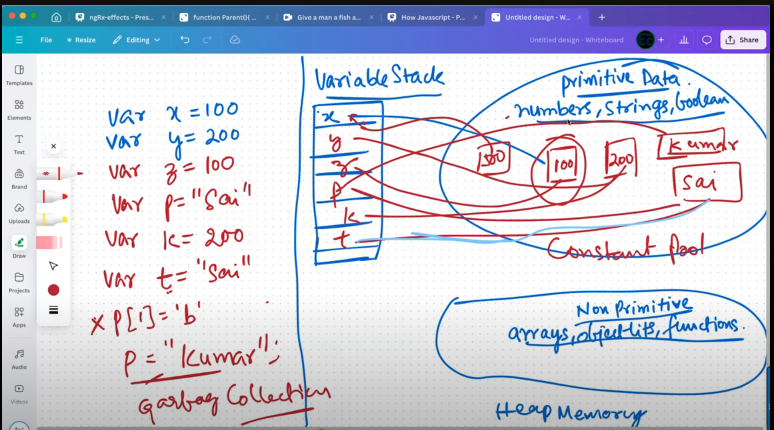 ngRx-effects - Pres...
function Parent(){ ...
Give a man a fish a...
How Javascript - P...
Untitled design - W...
File
Resize
Editing
Untitled design - Whiteboard
Share
Templates
Elements
Text
Brand
Uploads
Draw
Projects
Apps
Audio
Videos
var x = 100
var y = 200
var z = 100
var p = "Sai"
var k = 200
var t = "Sai"
x p[1] = 'b'
p = "Kumar";
Garbag Collection
Variable Stack
x
y
z
p
k
t
primitive Data.
numbers, Strings, boolean
100
200
Kumar
Sai
Constant pool
Non Primitive
arrays, objectlits, functions.
Heap Memory